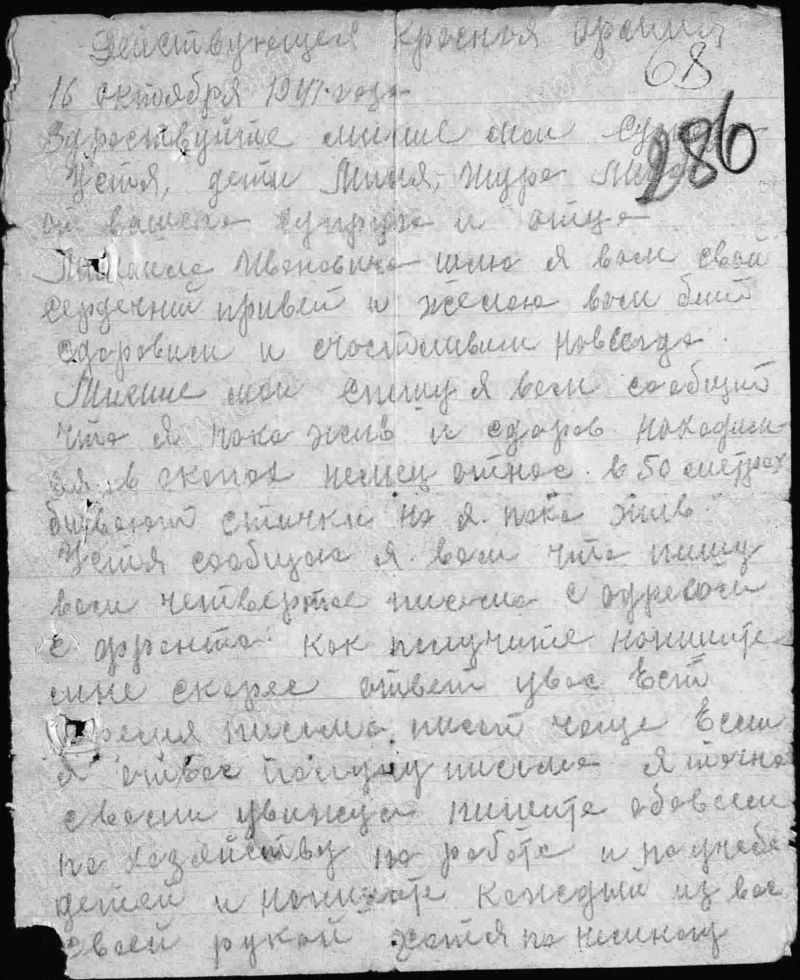 Действующая красная армия
68
16 октября 1941 года
286
Здраствуйте милые мои
Устя, дети Миня, Шура
от вашего супруга и отца
Михаила Ивановича шлю я вам свой
сердечний привет и желаю вам бит
здоровими и счастливими навсегда
Милие мои спешу я вам сообщит
что я пока жив и здоров находим
ся в окопах немец от нас в 50 метрах
бивают стички но я пока жив
Устя сообщаю я вам что пишу
вам четвертое письмо с адресом
с фронта как получите напишите
мне скорее ответ у вас Ест
время письма писат чаще Если
я от вас получу письмо я точно
с вами увижуся пишите обо всем
по хозяйству по работе и по учебе
детей и напишите каждый из вас
своей рукой хотя по немногу